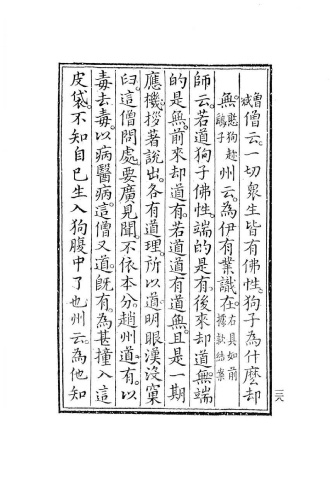 僧云。一切眾生皆有佛性。狗子為什麼却
無。憨狗趂鷂子州云。為伊有業識在。右具如前據款結案
師云。若道狗子佛性端的是有。後來却道無。端
的是無。前來却道有。若道道有道無。且是一期
應機。拶著說出。各有道理。所以道明眼漢沒窠
臼。這僧問處。要廣見聞。不依本分。趙州道有。以
毒去毒。以病醫病。這僧又道。既有。為甚撞入這
皮袋。不知自己生入狗腹中了也。州云。為他知